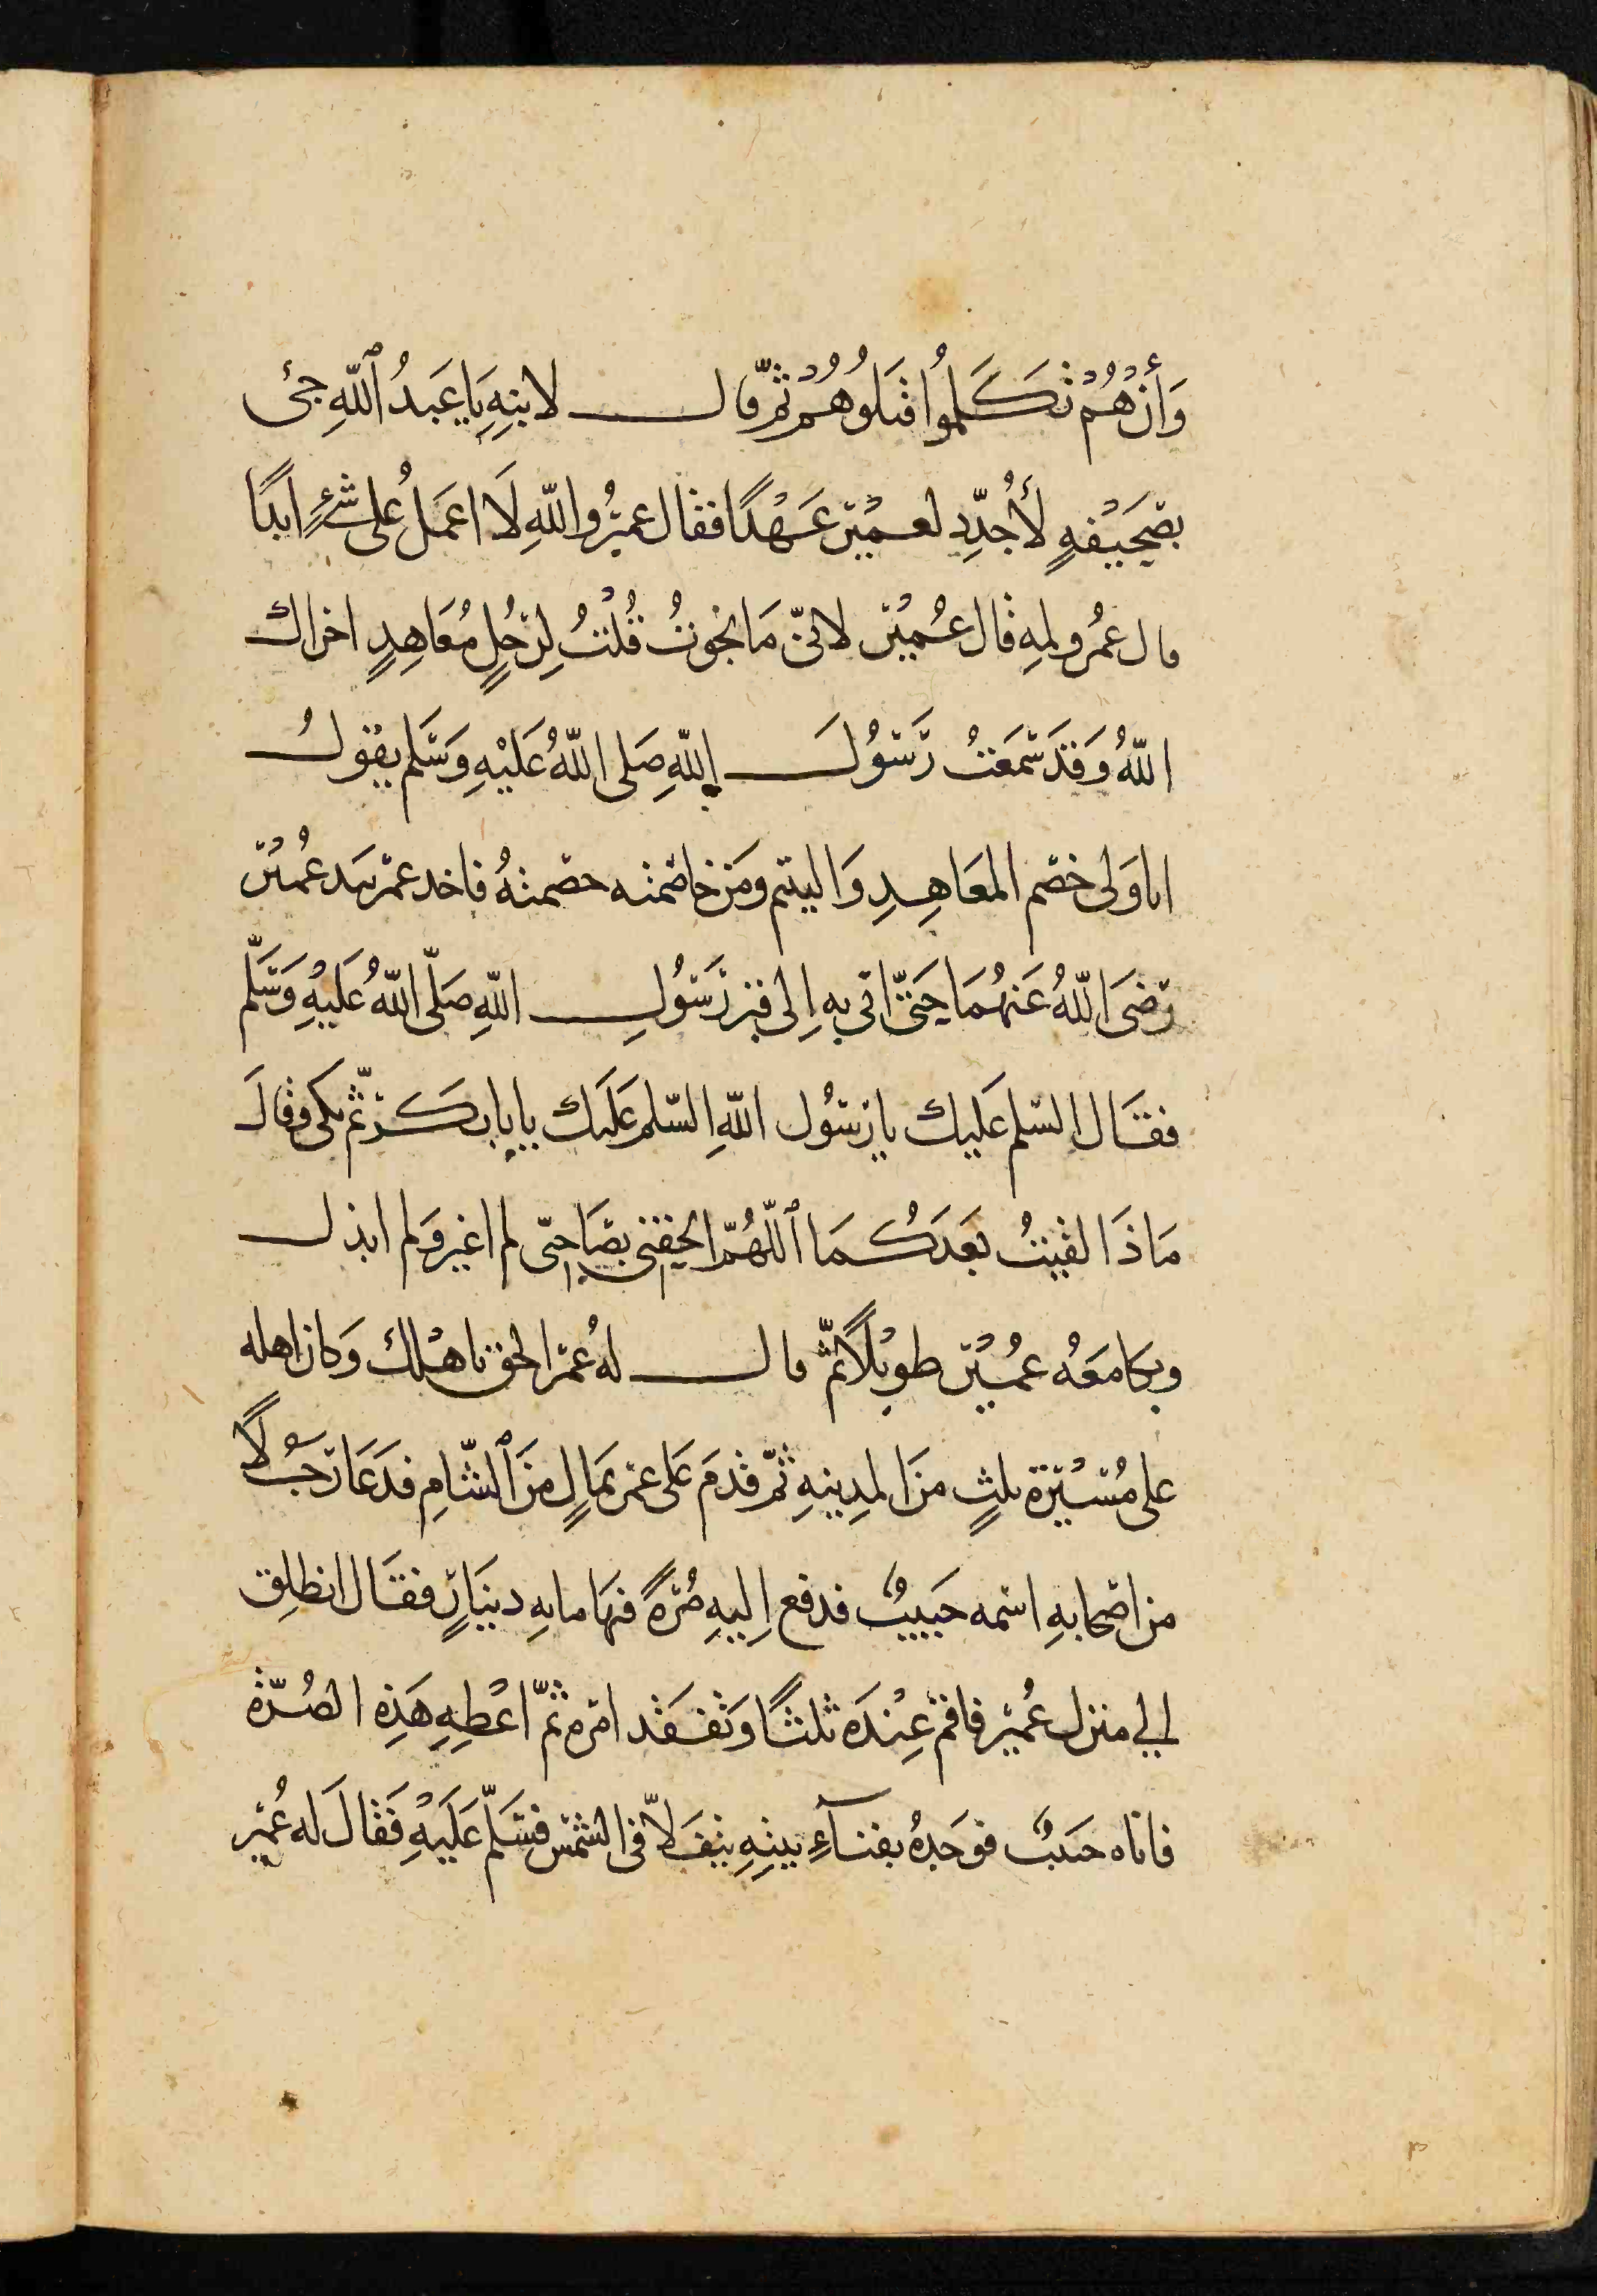 وَأنْ هُمْ تَكَلَّموُا قتَلوُهُمْ ثمّ قال لابنِهِ يَا عَبدُ ٱللّهِ جئ
بصَحَيْفهٍ لأُجدِّد لعُمَيْر عَهْدًا فقال عميرُ واللّهِ لَا اعمَلُ على شَئٍ ابدًا
قال عمُر ولمِهِ قال عُميْر لانىّ مَا نجوتُ قُلْتُ لِرَجُلٍ مُعَاهِدٍ اخزاك
اللّهُ وَقدَ سَمعَتُ رَسُولَ اللّهِ صَلى اللّهُ عَليْهِ وَسَلم يقولُ
انا وَلى خصْم المعَاهِدِ وَاليتيم ومَن خاصَمته خصمتهُ فاخد عمَر بيَد عُميْر
رَضىَ اللّهُ عَنهُمَا حَتىّ اتى به اِلى قبر رَسُولِ اللّهِ صَلّى اللّهُ عَليْهِ وَسَلّم
فقَال السّلم عَليك يا رَسُول اللّهِ السّلم عَليَك يا بابا بكَر ثمّ بكى وقالَ
مَاذَا لقيتُ بَعدَكُمَا ٱللّهُمّ الحقنى بصَاحبىّ لم اغير وَلم ابذل
وبكا معَهُ عمُيْر طويْلاً ثمّ قال لهُ عمُر الحق باهْلك وَكان اهله
على مُسَيْرة ثلثٍ منَ المدِينهِ ثمّ قدمَ عَلى عمَر بمَالٍ منَ ٱلشّامِ فدَعَا رَجُلاً
من اصحابهِ اسمه حَبيبٌ فدفع اِليهِ صُرةً فيهَا مايهِ دينَارٍ فقَال انطلِق
الي منزل عُميْر فاقمْ عِنْدَه ثلثَاً وَتفقَد امره ثمّ اعْطِهِ هَذِه الصُرّة
فاتاه حَبيبٌ فوَجدهُ بفنآءِ بيتهِ يتفَلاّ فى الشمْس فسَلّم عَليَهْ فَقالَ له عُميْر